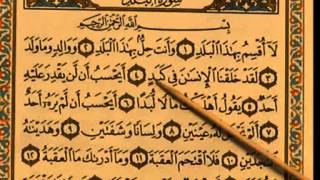 سورة البلد
بسم الله الرحمن الرحيم
لَآ أُقْسِمُ بِهَٰذَا ٱلْبَلَدِ ١ وَأَنتَ حِلٌّۢ بِهَٰذَا ٱلْبَلَدِ ٢ وَوَالِدٍ وَمَا وَلَدَ
٣ لَقَدْ خَلَقْنَا ٱلْإِنسَٰنَ فِى كَبَدٍ ٤ أَيَحْسَبُ أَن لَّن يَقْدِرَ عَلَيْهِ
أَحَدٌ ٥ يَقُولُ أَهْلَكْتُ مَالًا لُّبَدًا ٦ أَيَحْسَبُ أَن لَّمْ يَرَهُۥٓ أَحَدٌ
٧ أَلَمْ نَجْعَل لَّهُۥ عَيْنَيْنِ ٨ وَلِسَانًا وَشَفَتَيْنِ ٩ وَهَدَيْنَٰهُ
ٱلنَّجْدَيْنِ ١٠ فَلَا ٱقْتَحَمَ ٱلْعَقَبَةَ ١١ وَمَآ أَدْرَىٰكَ مَا ٱلْعَقَبَةُ ١٢